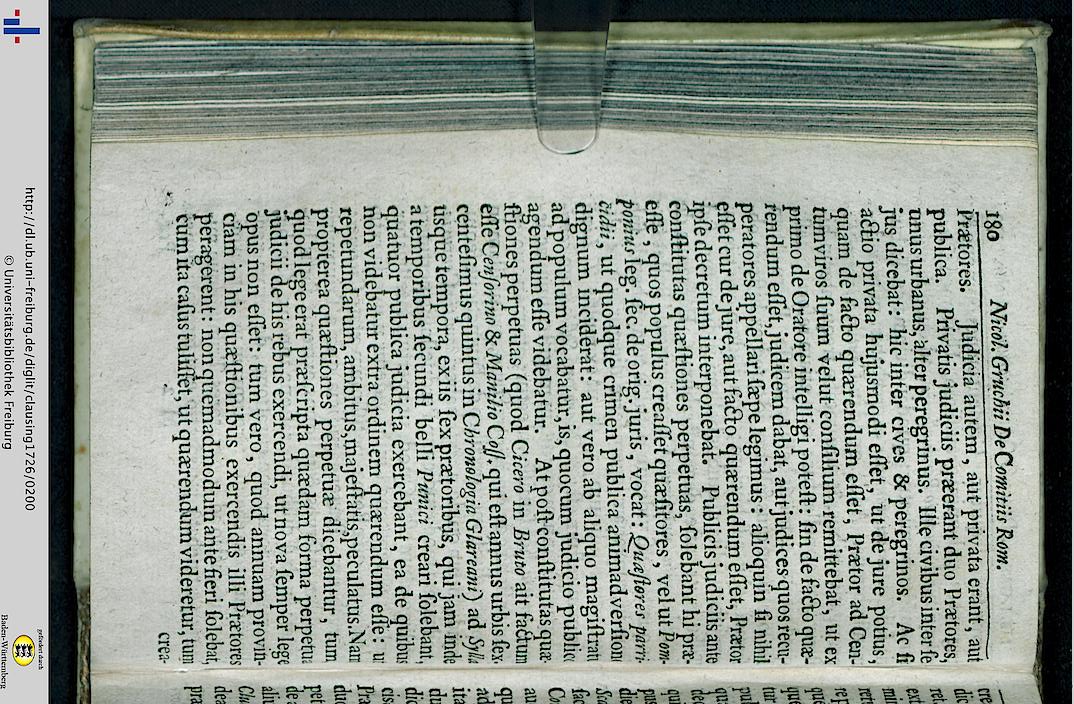 180 Nicol. Gruchii De Comitiis Rom.
Prætores. Judicia autem, aut privata erant, aut
publica. Privatis judiciis præerant duo Prætores,
unus urbanus, alter peregrinus. Ille civibus inter se
jus dicebat: hic inter cives & peregrinos. Ac si
actio privata hujusmodi esset, ut de jure potius,
quam de facto quærendum esset, Prætor ad Cen-
tumviros suum velut consilium remittebat, ut ex
primo de Oratore intelligi potest: sin de facto quæ-
rendum esset, judicem dabat, aut judices quos recu-
peratores appellari sæpe legimus: alioquin si nihil
esset cur de jure, aut facto quærendum esset, Prætor
ipse decretum interponebat. Publicis judiciis, ante
constitutas quæstiones perpetuas, solebant hi præ-
esse, quos populus creasset quæsitores, vel ut Pom-
ponius leg. sec. de orig. juris, vocat: Quæstores parri-
cidii, ut quodque crimen publica animadversion
dignum inciderat: aut vero ab aliquo magistratu
ad populum vocabatur, is, quocum judicio publico
agendum esse videbatur. At post constitutas quæ
stiones perpetuas (quod Cicero in Bruto ait factum
esse Censorino & Manilio Coss. qui est annus urbis sex.
centesimus quintus in Chronologia Glareani) ad Sylla
tisque tempora, ex iis sex prætoribus, qui jam inde
a temporibus secundi belli Punici creari solebant,
quatuor publica judicia exercebant, ea de quibus
non videbatur extra ordinem quærendum esse: u
repetundarum, ambitus, majestatis, peculatus. Nam
propterea quæstiones perpetuæ dicebantur, tum
quod lege erat præscripta quædam forma perpetua
judicii de his rebus exercendi, ut nova semper lege
opus non esset: tum vero, quod annuam provin-
ciam in his quæstionibus exercendis illi Prætores
peragerent: non quemadmodum ante fieri solebat,
cum ita casus tulisset, ut quærendum videretur, tum
crea-
http://dl.ub.uni-freiburg.de/diglit/clausing1726/0200
© Universitätsbibliothek Freiburg
gefördert durch
Baden-Württemberg